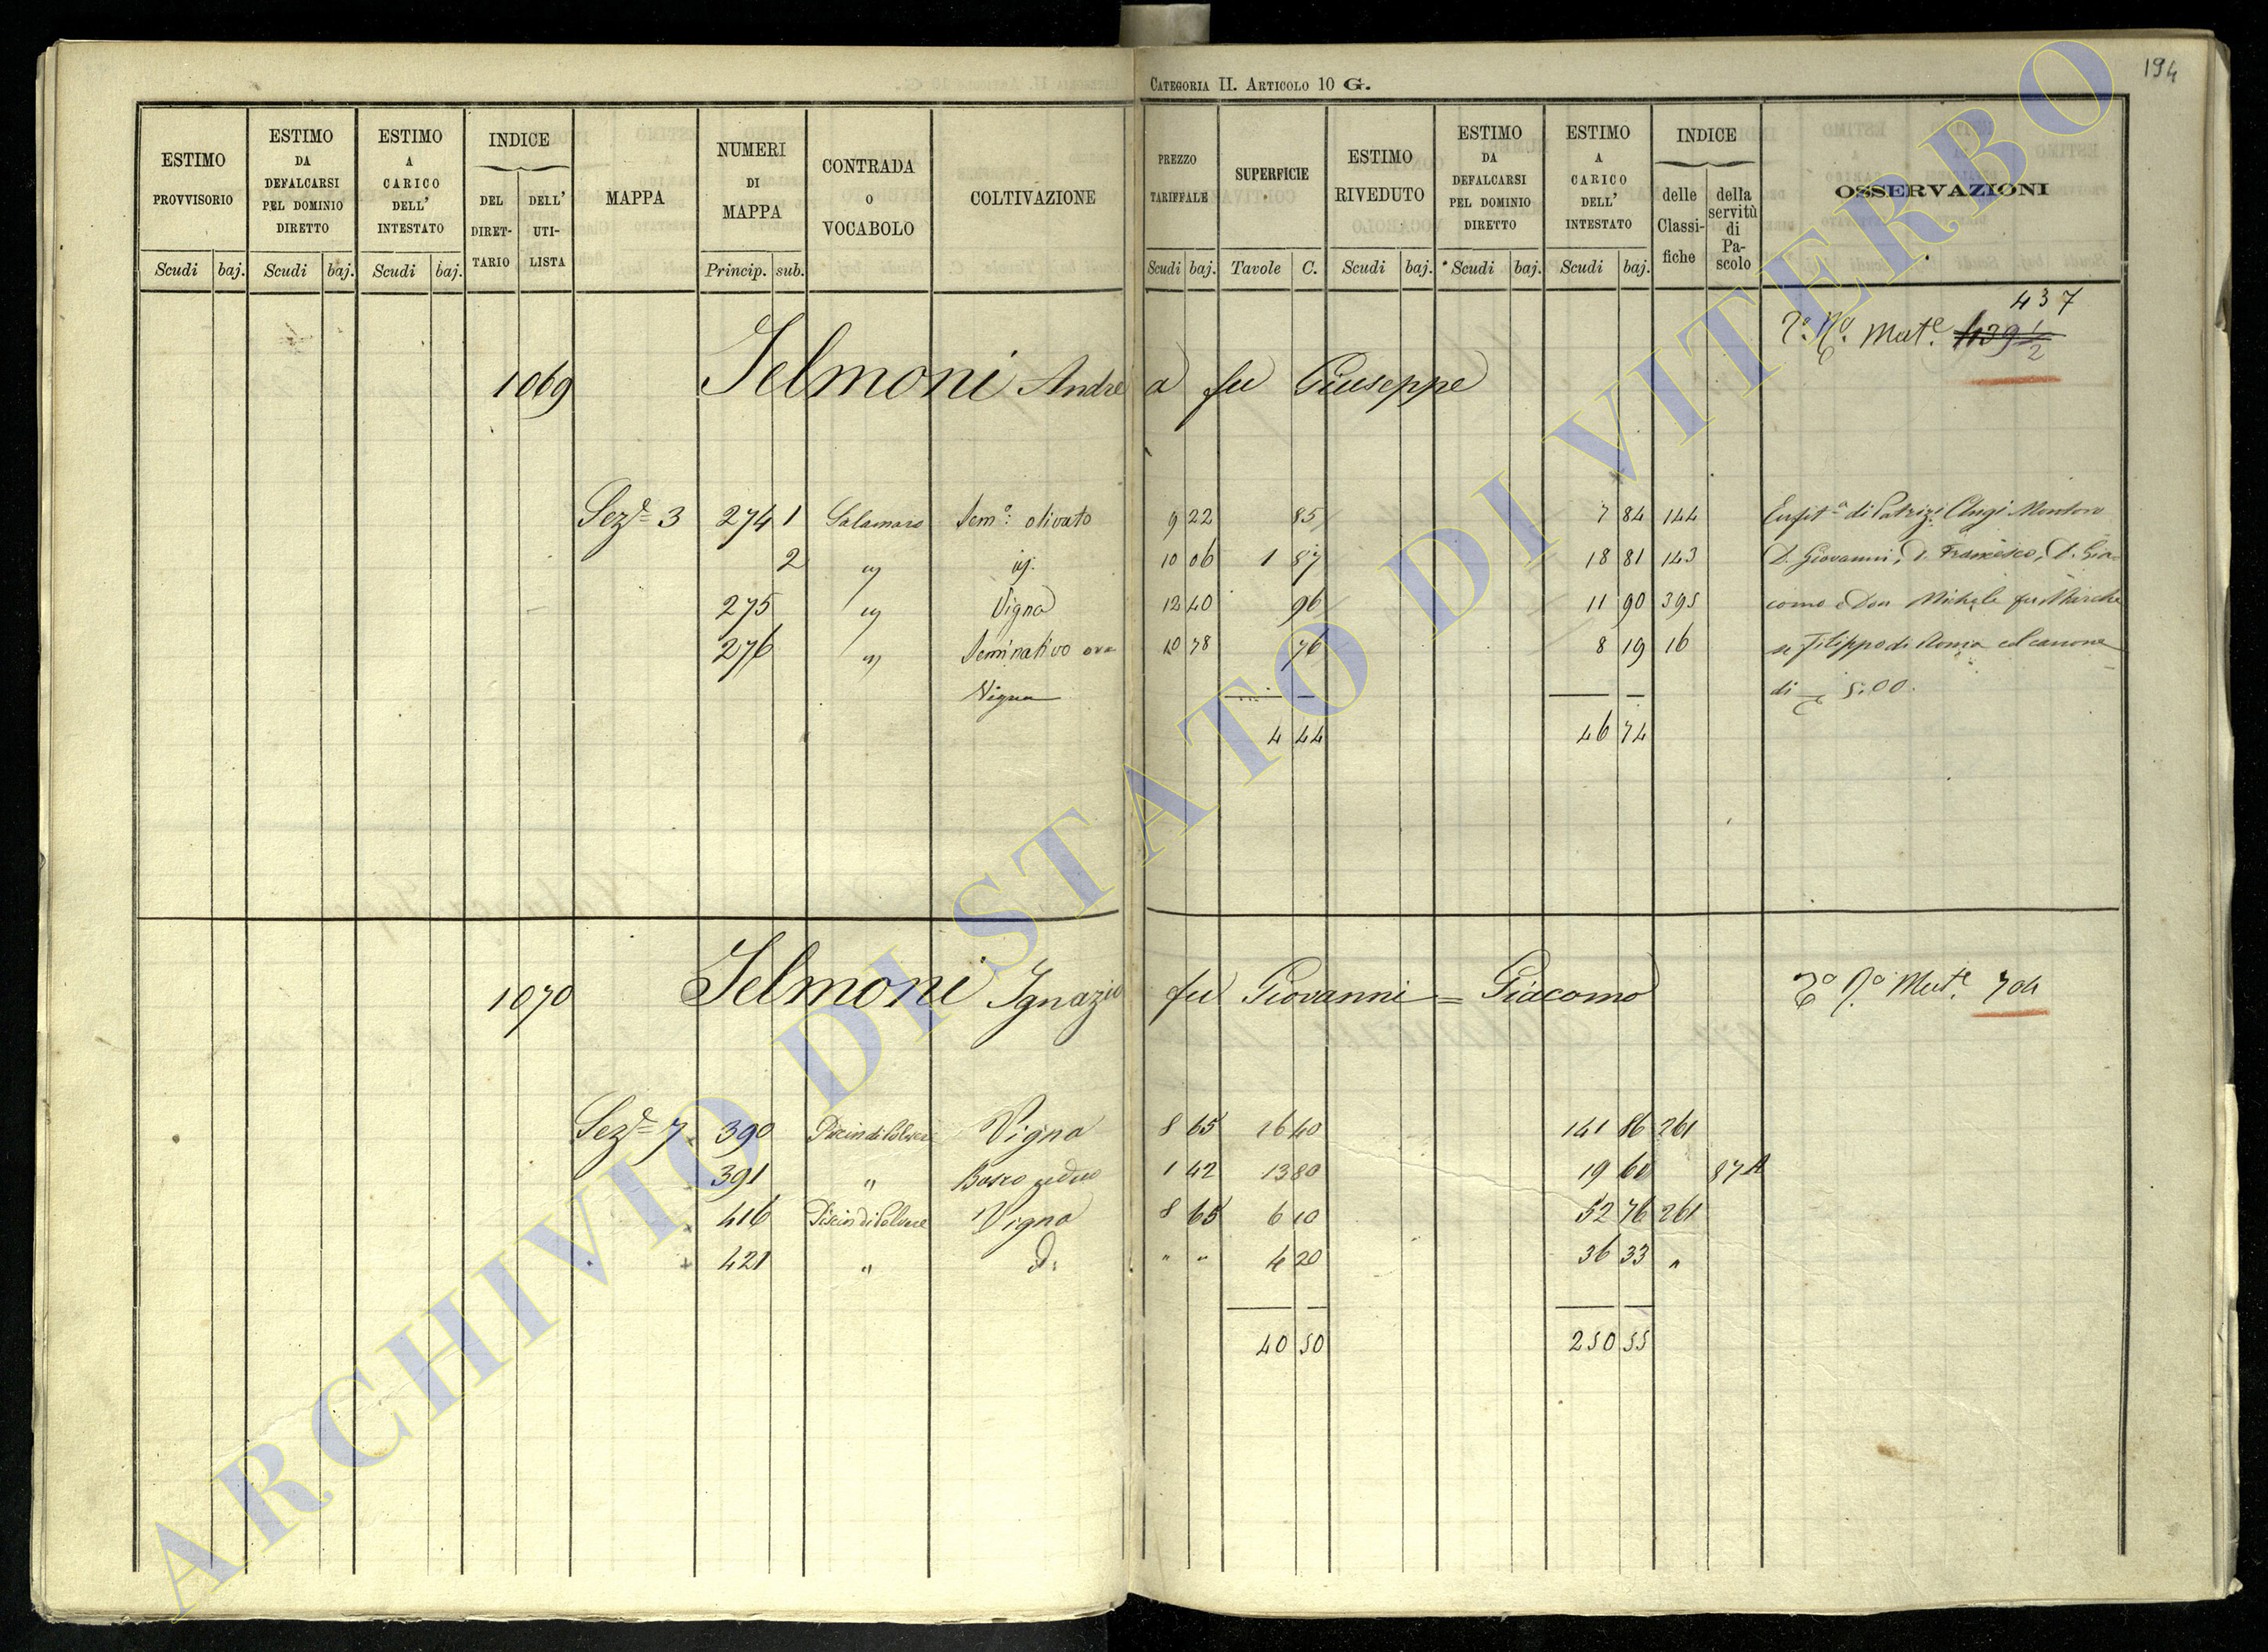 194
CATEGORIA II. ARTICOLO 10 G.
ESTIMO PROVVISORIO
ESTIMO DA DEFALCARSI PEL DOMINIO DIRETTO
ESTIMO A CARICO DELL' INTESTATO
INDICE
DEL DIRET-TARIO
DELL' UTI-LISTA
MAPPA
NUMERI DI MAPPA
CONTRADA O VOCABOLO
COLTIVAZIONE
PREZZO TARIFFALE
SUPERFICIE
ESTIMO RIVEDUTO
ESTIMO DA DEFALCARSI PEL DOMINIO DIRETTO
ESTIMO A CARICO DELL' INTESTATO
INDICE
delle Classi-fiche
della servitù di Pa-scolo
OSSERVAZIONI
Scudi baj. Scudi baj. Scudi baj. Princip. sub. Scudi baj. Tavole C. Scudi baj. Scudi baj. Scudi baj.
437
Mate. 439 1/2
1069 Selmoni Andrea fu Giuseppe
Sez.e 3 274 1 Salamaro Sem.o olivato 9 22 85 7 84 144
2 " id. 10 06 1 87 18 81 143
275 " Vigna 12 40 96 11 90 395
276 " Seminativo ora 10 78 76 8 19 16
Vigna
4 44 46 74
Enfit.a di Patrizi Chigi Montoro
D. Giovanni, D. Francesco, D. Gia-
como e Don Michele fu Marche
se Filippo di Roma col canone
di 5:00.
1070 Selmoni Ignazio fu Giovanni = Giacomo
Mate. 704
Sez.e 7 390 Vigna 8 65 16 40 141 86 261
391 " Bosco ceduo 1 42 13 80 19 60 87 A
416 Vigna 8 65 6 10 52 76 261
421 " d.o " " 4 20 36 33 "
40 50 250 55
ARCHIVIO DI STATO DI VITERBO